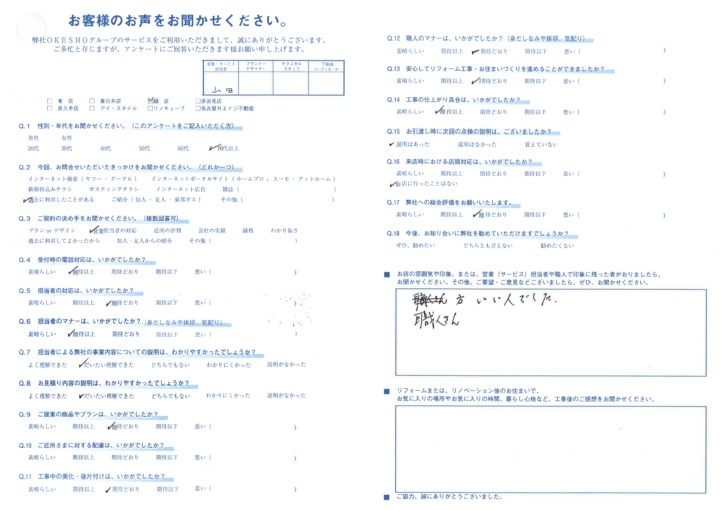 お客様のお声をお聞かせください。
弊社OKESHOグループのサービスをご利用いただきまして、誠にありがとうございます。
ご多忙と存じますが、アンケートにご回答いただきます様お願い申し上げます。
営業・サービス担当者 プランナーデザイナー テクニカルスタッフ 不動産
山田
東店 春日井店 緑店 多治見店
長久手店 アイ・スタイル リノキューブ 名古屋Rエイジ不動産
Q.1 性別・年代をお聞かせください。（このアンケートをご記入いただく方）
男性 女性
20代 30代 40代 50代 60代 70代以上
Q.2 今回、お問合せいただいたきっかけをお聞かせください。（どれか一つ）
インターネット検索（ヤフー・グーグル） インターネットポータルサイト（ホームプロ・スーモ・アットホーム）
新聞折込みチラシ ポスティングチラシ インターネット広告 雑誌（ ）
過去に利用したことがある ご紹介（知人・友人・東邦ガス） その他（ ）
Q.3 ご契約の決め手をお聞かせください。（複数回答可）
プラン or デザイン 営業担当者の対応 近所の評判 会社の実績 価格 わかり易さ
過去に利用してよかったから 知人・友人からの紹介 その他（ ）
Q.4 受付時の電話対応は、いかがでしたか？
素晴らしい 期待以上 期待どおり 期待以下 悪い（ ）
Q.5 担当者の対応は、いかがでしたか？
素晴らしい 期待以上 期待どおり 期待以下 悪い（ ）
Q.6 担当者のマナーは、いかがでしたか？（身だしなみや挨拶、気配り）
素晴らしい 期待以上 期待どおり 期待以下 悪い（ ）
Q.7 担当者による弊社の事業内容についての説明は、わかりやすかったでしょうか？
よく理解できた だいたい理解できた どちらでもない わかりにくかった 説明がなかった
Q.8 お見積り内容の説明は、わかりやすかったでしょうか？
よく理解できた だいたい理解できた どちらでもない わかりにくかった 説明がなかった
Q.9 ご提案の商品やプランは、いかがでしたか？
素晴らしい 期待以上 期待どおり 期待以下 悪い（ ）
Q.10 ご近所さまに対する配慮は、いかがでしたか？
素晴らしい 期待以上 期待どおり 期待以下 悪い（ ）
Q.11 工事中の美化・後片付けは、いかがでしたか？
素晴らしい 期待以上 期待どおり 期待以下 悪い（ ）
Q.12 職人のマナーは、いかがでしたか？（身だしなみや挨拶、気配り）
素晴らしい 期待以上 期待どおり 期待以下 悪い（ ）
Q.13 安心してリフォーム工事・お住まいづくりを進めることができましたか？
素晴らしい 期待以上 期待どおり 期待以下 悪い（ ）
Q.14 工事の仕上がり具合は、いかがでしたか？
素晴らしい 期待以上 期待どおり 期待以下 悪い（ ）
Q.15 お引渡し時に次回の点検の説明は、ございましたか？
説明はあった 説明はなかった 覚えていない
Q.16 来店時における店頭対応は、いかがでしたか？
素晴らしい 期待以上 期待どおり 期待以下 悪い（ ）
お店に行ったことはない
Q.17 弊社への総合評価をお願いいたします。
素晴らしい 期待以上 期待どおり 期待以下 悪い（ ）
Q.18 今後、お知り合いに弊社を勧めていただけますでしょうか？
ぜひ、勧めたい どちらとも言えない 勧めたくない
お店の雰囲気や印象、または、営業（サービス）担当者や職人で印象に残った者がおりましたら、
お聞かせください。その他、ご要望・ご意見などございましたら、ぜひ、お聞かせください。
方 いい人でした
職人さん
リフォームまたは、リノベーション後のお住まいで、
お気に入りの場所やお気に入りの時間、暮らし心地など、工事後のご感想をお聞かせください。
ご協力、誠にありがとうございました。